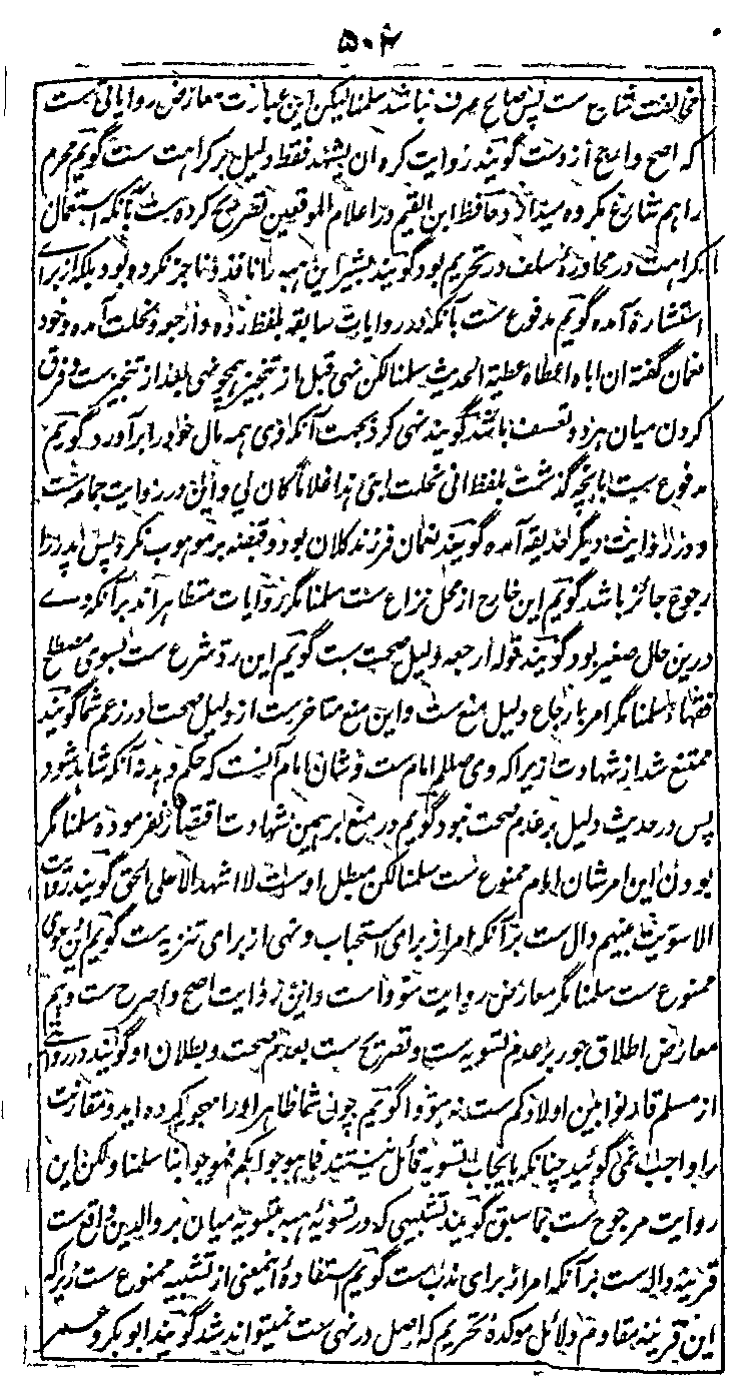 ۵۰۴
مخالفت شارع ست پس صالح صرف نباشد سلمنا لیکن این عبارت معارض روایاتی ست
که اصح وارجح از وست گویند روایت کره ان یشهد فقط دلیل بر کراهت ست گویم محرم
را هم شارع مکروه میداند و حافظ ابن القیم در اعلام الموقعین تصریح کرده ست بآنکه استعمال
کراهت در محاورهٔ سلف در تحریم بود گویند بشیر این هبه را نافذ و ناجز نکرده بود بلکه از برای
استشاره آمده گویم مدفوع ست بآنکه در روایات سابقه بلفظ رُدّه و ارجعه و نحلت آمده و خود
نعمان گفته ان اباه اعطاه عطیة الحدیث سلمنا لکن نهی قبل از تنجیز همچو نهی بعد از تنجیز ست و فرق
کردن میان هر دو تعسف باشد گویند نهی کرد بجهت آنکه وی همه مال خود را برآورد گویم
مدفوع ست بآنچه گذشت بلفظ انی نحلت ابنی هذا غلاما کان لی و این در روایت جماعه ست
و در روایت دیگر لحدیقه آمده گویند نعمان فرزند کلان بود و قبضه بر موهوب نکرد پس پدر را
رجوع جائز باشد گویم این خارج از محل نزاع ست سلمنا مگر روایات متظاهر اند بر آنکه وے
درین حال صغیر بود گویند قوله ارجعه دلیل صحت ست گویم این ردّ شرع ست بسوی مصطلح
فقهاء سلمنا مگر امر بارجاع دلیل منع ست و این منع متاخر ست از دلیل صحت در زعم شما گویند
ممتنع شد از شهادت زیرا که وی صللم امام ست و شان امام آنست که حکم دهد نه آنکه شاهد شود
پس در حدیث دلیل بر عدم صحت نبود گویم در منع بر همین شهادت اقتصار نفرموده سلمنا مگر
بودن این امر شان امام ممنوع ست سلمنا لکن مبطل اوست لا اشهد الا علی الحق گویند روایت
الا سویت بینهم دال ست بر آنکه امر از برای استحباب و نهی از برای تنزیه ست گویم این دعوی
ممنوع ست سلمنا مگر معارض روایت سوّوا ست و این روایت اصح و اصرح ست و هم
معارض اطلاق جور بر عدم تسویه ست و تصریح ست بعدم صحت و بطلان او گویند در روایت
از مسلم قاربوا بین اولادکم ست نه سوّوا گویم چون شما ظاهر او را مهجور کرده اید و مقاربت
را واجب نمی گوئید چنانکه بایجاب تسویه قائل نیستید فما هو جوابکم فهو جوابنا سلمنا ولکن این
روایت مرجوح ست بما سبق گویند تشبیهی که در تسویهٔ هبه بتسویه میان بر والدین واقع ست
قرینهٔ داله ست بر آنکه امر از برای ندب ست گویم استفادهٔ اینمعنی از تشبیه ممنوع ست زیرا که
این قرینه مقاوم دلائل موکدهٔ تحریم که اصل در نهی ست نمیتواند شد گویند ابو بکر و عمر